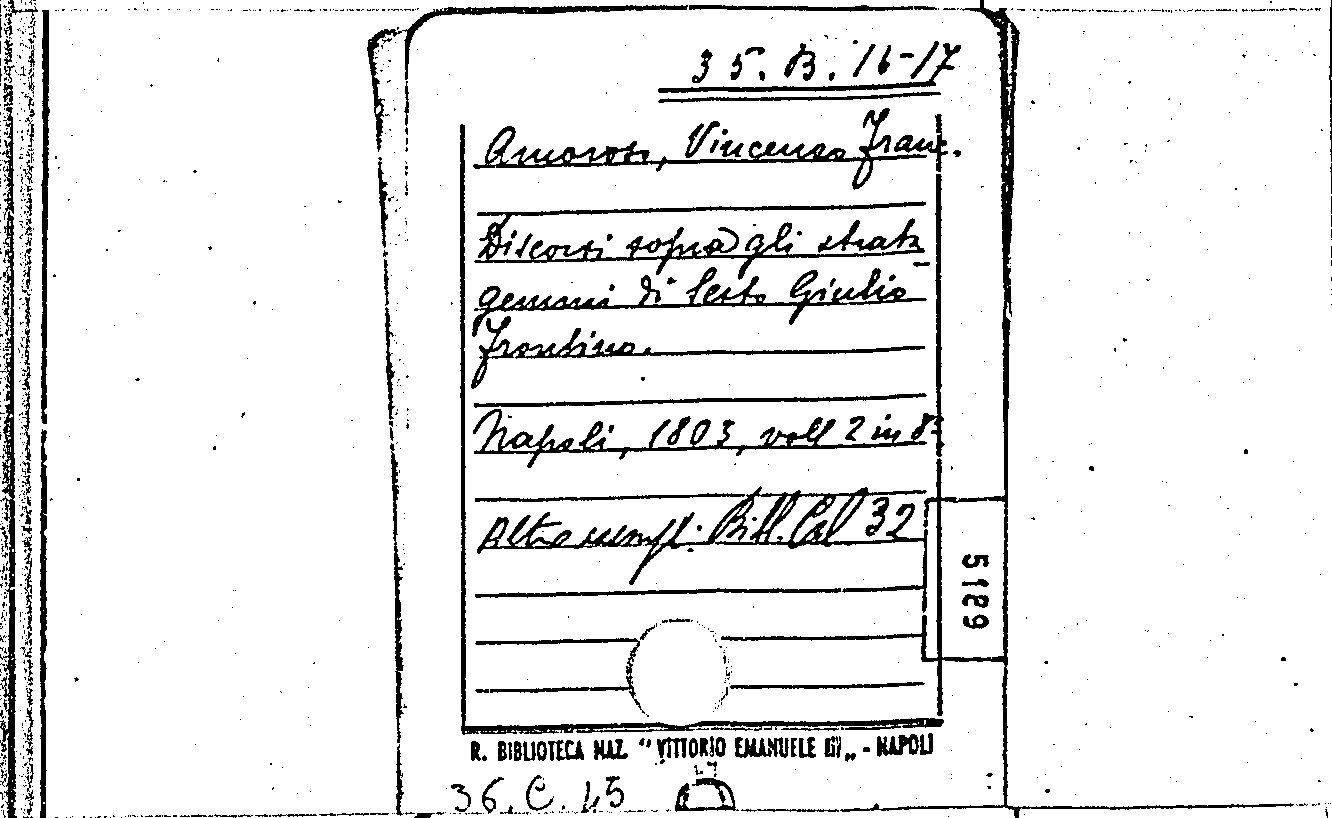 35.B.16-17
Amorosi, Vincenzo Franc.
Discorsi sopra gli strata
gemmi di Sesto Giulio
Frontino.
Napoli, 1803, voll 2 in 8º
Altro esempl: Bibl. Col 32
5189
R. BIBLIOTECA NAZ. "VITTORIO EMANUELE III„ - NAPOLI
36.C.45